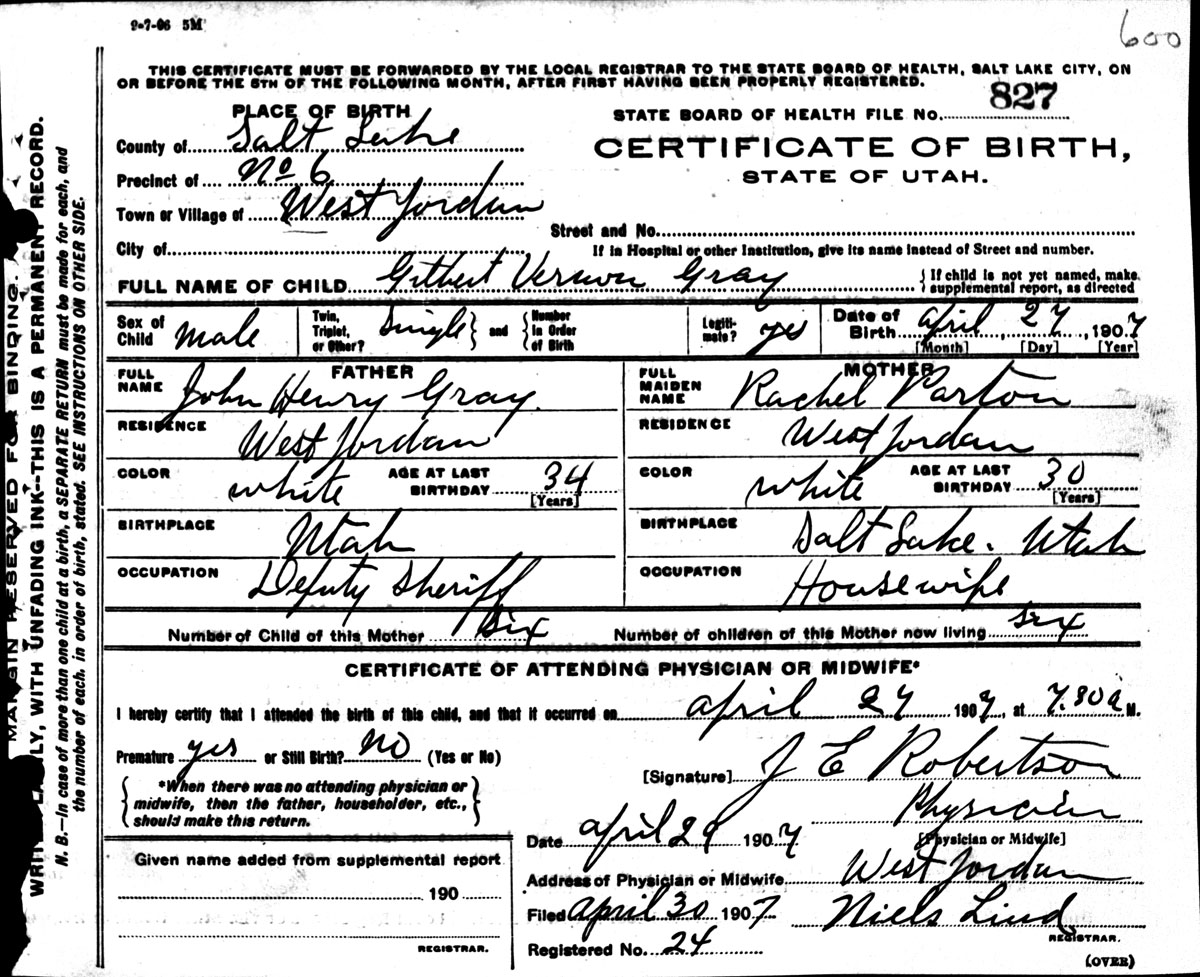 9-7-06 5M
600
THIS CERTIFICATE MUST BE FORWARDED BY THE LOCAL REGISTRAR TO THE STATE BOARD OF HEALTH, SALT LAKE CITY, ON
OR BEFORE THE 5TH OF THE FOLLOWING MONTH, AFTER FIRST HAVING BEEN PROPERLY REGISTERED.
PLACE OF BIRTH
STATE BOARD OF HEALTH FILE No. 827
County of Salt Lake
CERTIFICATE OF BIRTH,
Precinct of No 6
STATE OF UTAH.
Town or Village of West Jordan
Street and No.
City of
If in Hospital or other Institution, give its name instead of Street and number.
FULL NAME OF CHILD Gilbert Vernon Gray
{If child is not yet named, make
supplemental report, as directed
Sex of Child Male
Twin, Triplet, or Other? Single } and { Number in Order of Birth
Legiti-mate? yes
Date of Birth April 27, 1907
[Month] [Day] [Year]
FATHER
MOTHER
FULL NAME John Henry Gray.
FULL MAIDEN NAME Rachel Parton
RESIDENCE West Jordan
RESIDENCE West Jordan
COLOR white AGE AT LAST BIRTHDAY 34 [Years]
COLOR white AGE AT LAST BIRTHDAY 30 [Years]
BIRTHPLACE Utah
BIRTHPLACE Salt Lake. Utah
OCCUPATION Deputy Sheriff
OCCUPATION Housewife
Number of Child of this Mother Six
Number of children of this Mother now living six
CERTIFICATE OF ATTENDING PHYSICIAN OR MIDWIFE*
I hereby certify that I attended the birth of this child, and that it occurred on April 27 1907, at 7.30 a M.
Premature yes or Still Birth? No (Yes or No)
[Signature] J E Robertson
{*When there was no attending physician or
midwife, then the father, householder, etc.,
should make this return.}
Physician
[Physician or Midwife]
Date April 29 1907
Given name added from supplemental report
190
REGISTRAR.
Address of Physician or Midwife West Jordan
Filed April 30 1907 Niels Lind
REGISTRAR.
Registered No. 24
(OVER)
MARGIN RESERVED FOR BINDING.
WITH UNFADING INK--THIS IS A PERMANENT RECORD.
N. B.—In case of more than one child at a birth, a SEPARATE RETURN must be made for each, and
the number of each, in order of birth, stated. SEE INSTRUCTIONS ON OTHER SIDE.